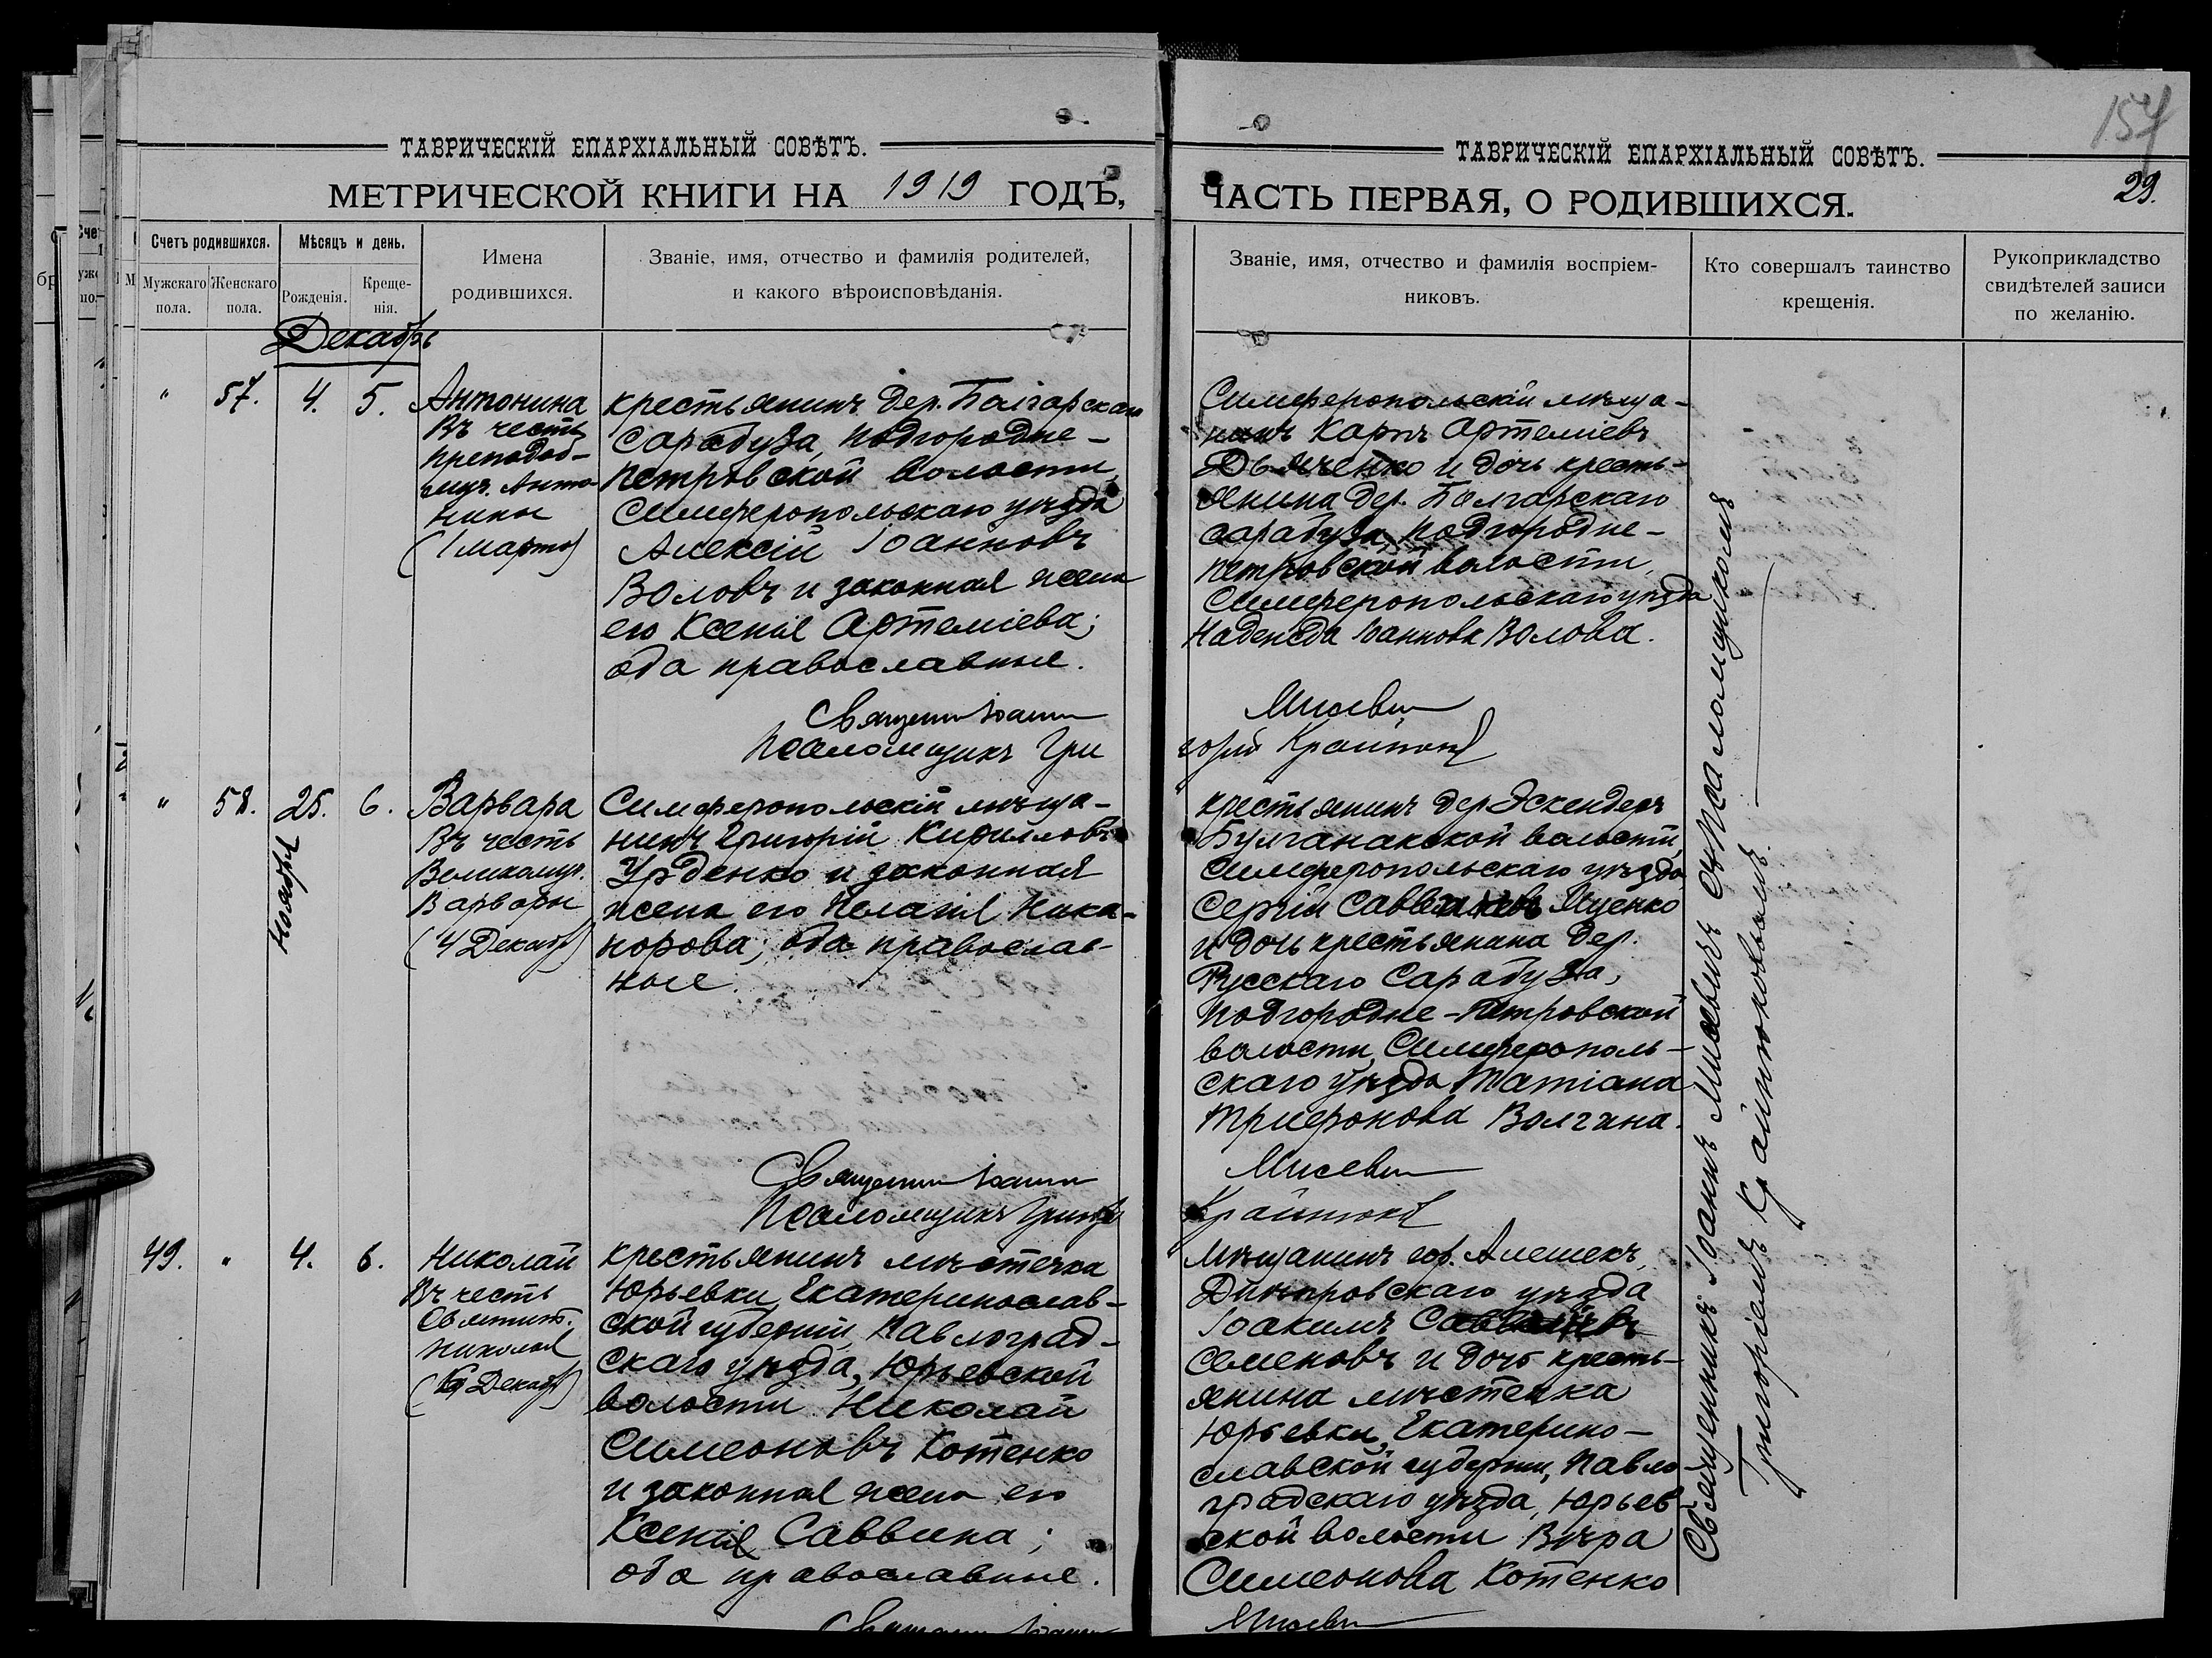 ТАВРИЧЕСКІЙ ЕПАРХІАЛЬНЫЙ СОВѢТЪ.
МЕТРИЧЕСКОЙ КНИГИ НА 1919 ГОДЪ,
Счетъ родившихся.
Мужскаго пола.
Женскаго пола.
Мѣсяцъ и день.
Рожденія.
Креще-
нія.
Имена
родившихся.
Званіе, имя, отчество и фамилія родителей,
и какого вѣроисповѣданія.
Декабрь
" 57. 4. 5.
Антонина
Въ честь
преподоб-
муч. Анто-
нины
(1 марта)
крестьянинъ дер. Болгарскаго
Сарабуза, Подгородне-
Петровской волости,
Симферопольскаго уѣзда
Алексій Іоанновъ
Воловъ и законная жена
его Ксенія Артеміева;
оба православные.
Священникъ Іоаннъ
Псаломщикъ Гри
" 58. 25. 6.
Ноября
Варвара
Въ честь
Великомуч.
Варвары
(4 Декабр)
Симферопольскій мѣща-
нинъ Григорій Кирилловъ
Урденко и законная
жена его Пелагія Ника-
норова; оба православ-
ные.
Священникъ Іоаннъ
Псаломщикъ Григорій
49. " 4. 6.
Николай
Въ честь
Святит.
Николая
(6 Декабр)
крестьянинъ мѣстечка
Юрьевки, Екатеринослав-
ской губерніи, Павлоград-
скаго уѣзда, Юрьевской
волости Николай
Симеоновъ Котенко
и законная жена его
Ксенія Саввина;
оба православные.
Священникъ Іоаннъ
ТАВРИЧЕСКІЙ ЕПАРХІАЛЬНЫЙ СОВѢТЪ.
157
ЧАСТЬ ПЕРВАЯ, О РОДИВШИХСЯ.
29.
Званіе, имя, отчество и фамилія воспріем-
никовъ.
Кто совершалъ таинство
крещенія.
Рукоприкладство
свидѣтелей записи
по желанію.
Симферопольскій мѣща-
нинъ Карпъ Артеміевъ
Дьяченко и дочь кресть-
янина дер. Болгарскаго
Сарабуза, Подгородне-
Петровской волости,
Симферопольскаго уѣзда
Надежда Іоаннова Волова.
Мисевичъ
горій Крайнюковъ
крестьянинъ дер Эскендеръ
Булганакской волости,
Симферопольскаго уѣзда
Сергій Яценко
и дочь крестьянина дер.
Русскаго Сарабуза,
Подгородне-Петровской
волости, Симферополь-
скаго уѣзда Татіана
Трифонова Волгина.
Мисевичъ
Крайнюковъ
Мѣщанинъ гор. Алешекъ,
Днѣпровскаго уѣзда
Іоакимъ
Семеновъ и дочь кресть-
янина мѣстечка
Юрьевки, Екатерино-
славской губерніи, Павло-
градскаго уѣзда, Юрьев-
ской волости Вѣра
Симеонова Котенко
Мисевичъ
Священникъ Іоаннъ Мисевичъ съ псаломщикомъ
Григоріемъ Крайнюковымъ.